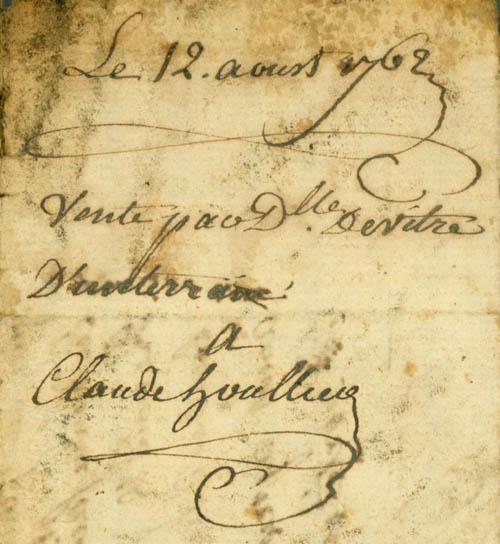 Le 12. aoust 1762
Vente par Dlle Devitre
D'un terrain
a
Claude houllier